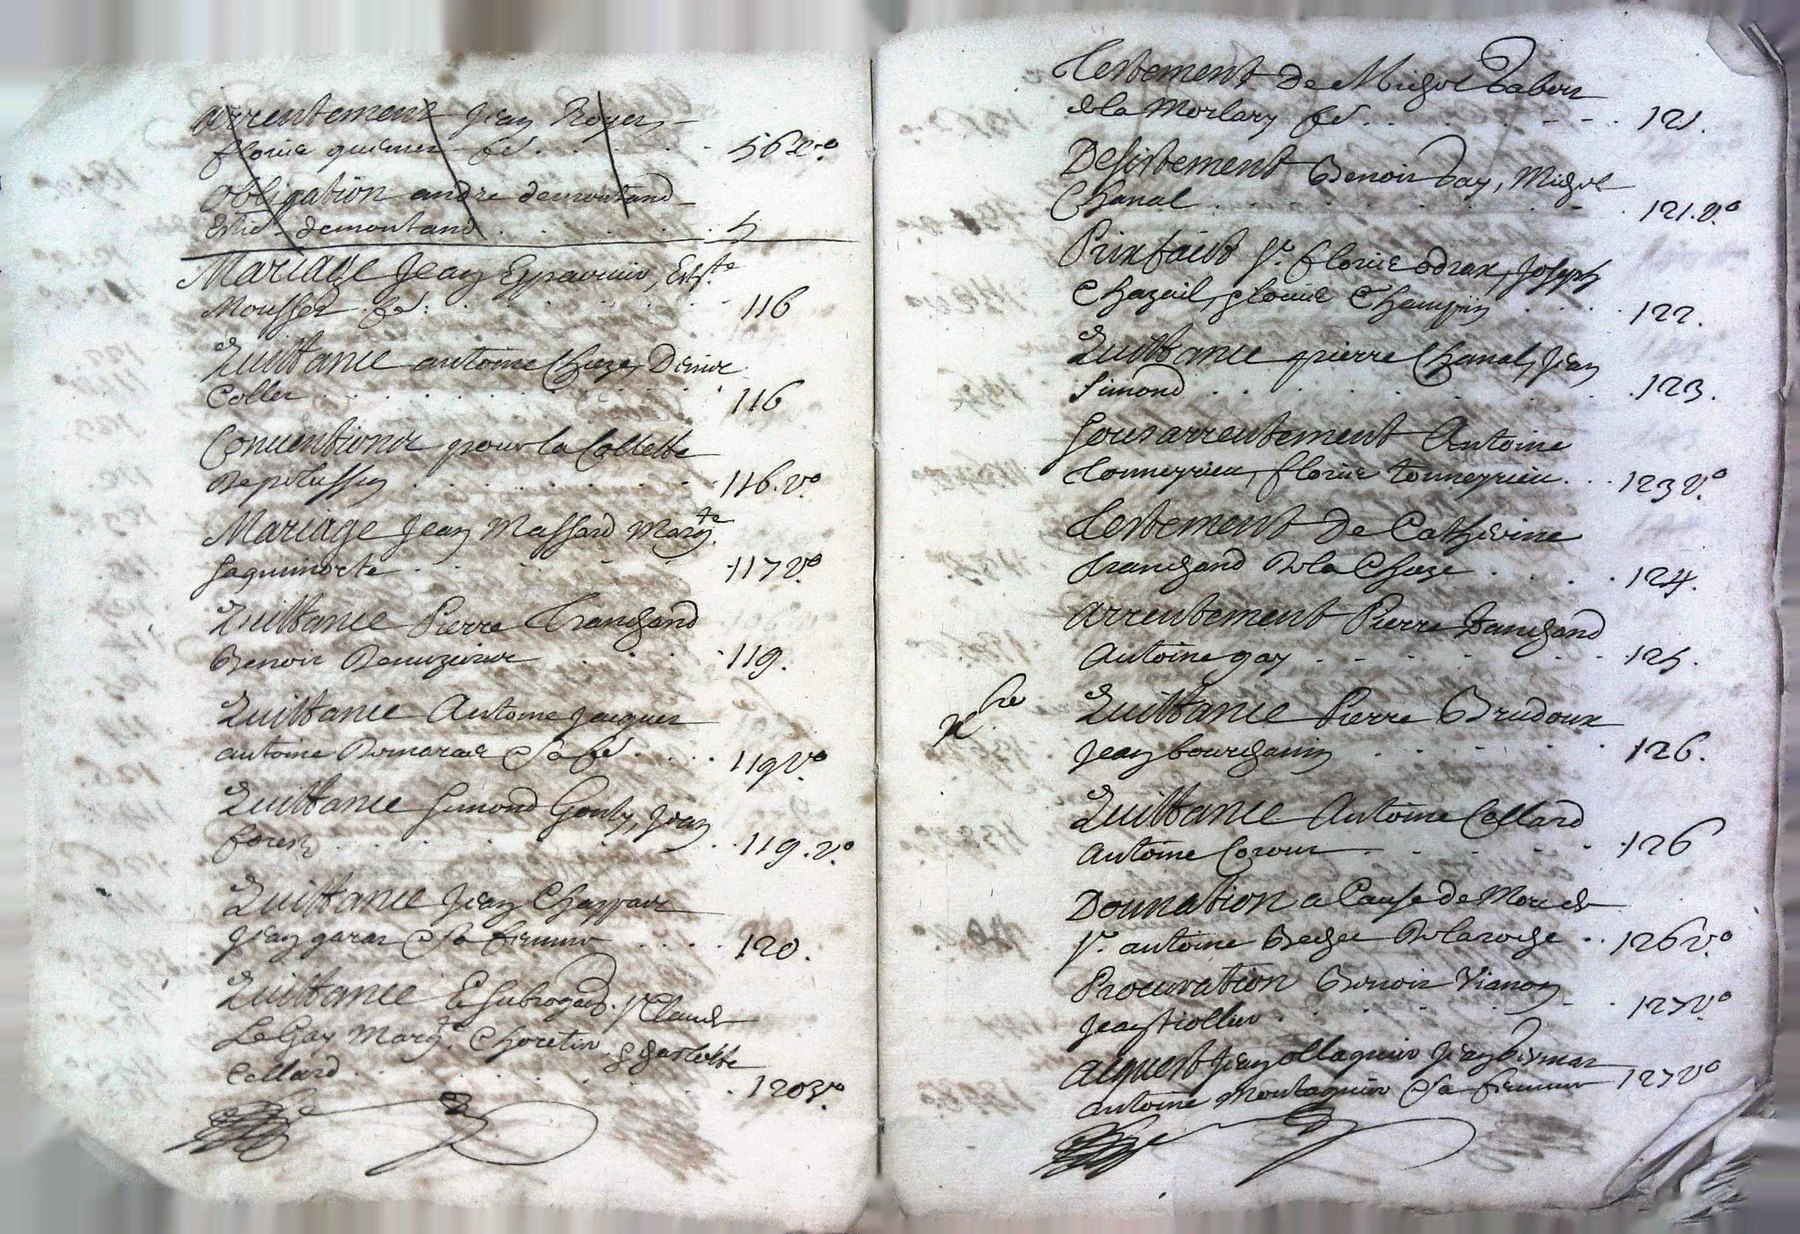 arrentement Jean Royer
florie guimer fe . . . 56 v.o
obligation andre demontand
demontand . . . 5
Mariage Jean Eyparvier, Est.te
Mousset fe . . . 116
Quittance antoine Chieze, Denir
Collet . . . 116
Conventionz pour la Collette
. . . 116.vo
Mariage Jean Massard Marg.te
Saguimorte . . . 117 vo
Quittance Pierre Tranchand
Benoir . . . 119.
Quittance Antoine Jacquer
antoine & sa fe . . . 119 vo
Quittance Simond Gouty, Jean
forest . . . 119.vo
Quittance Jean Chappave
Jean garar & sa femme . . . 120.
Quittance E Subrogaon Sr Claude
LeGay Marg.te Choretin
Collard . . . 120 vo.
Testement De Michel Tabou
de la Morlary fe . . . 121.
Desistement Benoir Fay, Michel
Chanal . . . 121.vo
Prixfaict Sr. florie odrax, Joseph
Chazail, florie Champin . . . 122.
Quittance pierre Chanal, Jean
Simond . . . 123.
Sousarrentement Antoine
Tonneyrieu, florie Tonneyrieu . . . 123 v.o
Testement De Catherine
Tranchand de la Chieze . . . 124.
arrentement Pierre Tranchand
Antoine gay . . . 125.
xbre
Quittance Pierre Brudoux
Jean bourchanin . . . 126.
Quittance Antoine Collard
Antoine Corour . . . 126
Donnation a Cause de Mort de
Sr. antoine Bechee de laroche . . . 126 vo.
Procuration Benoir Vianey
Jean fiollier . . . 127 vo.
Acquest Jean ollagnier Jean
antoine Montagnier & sa femme 127 vo